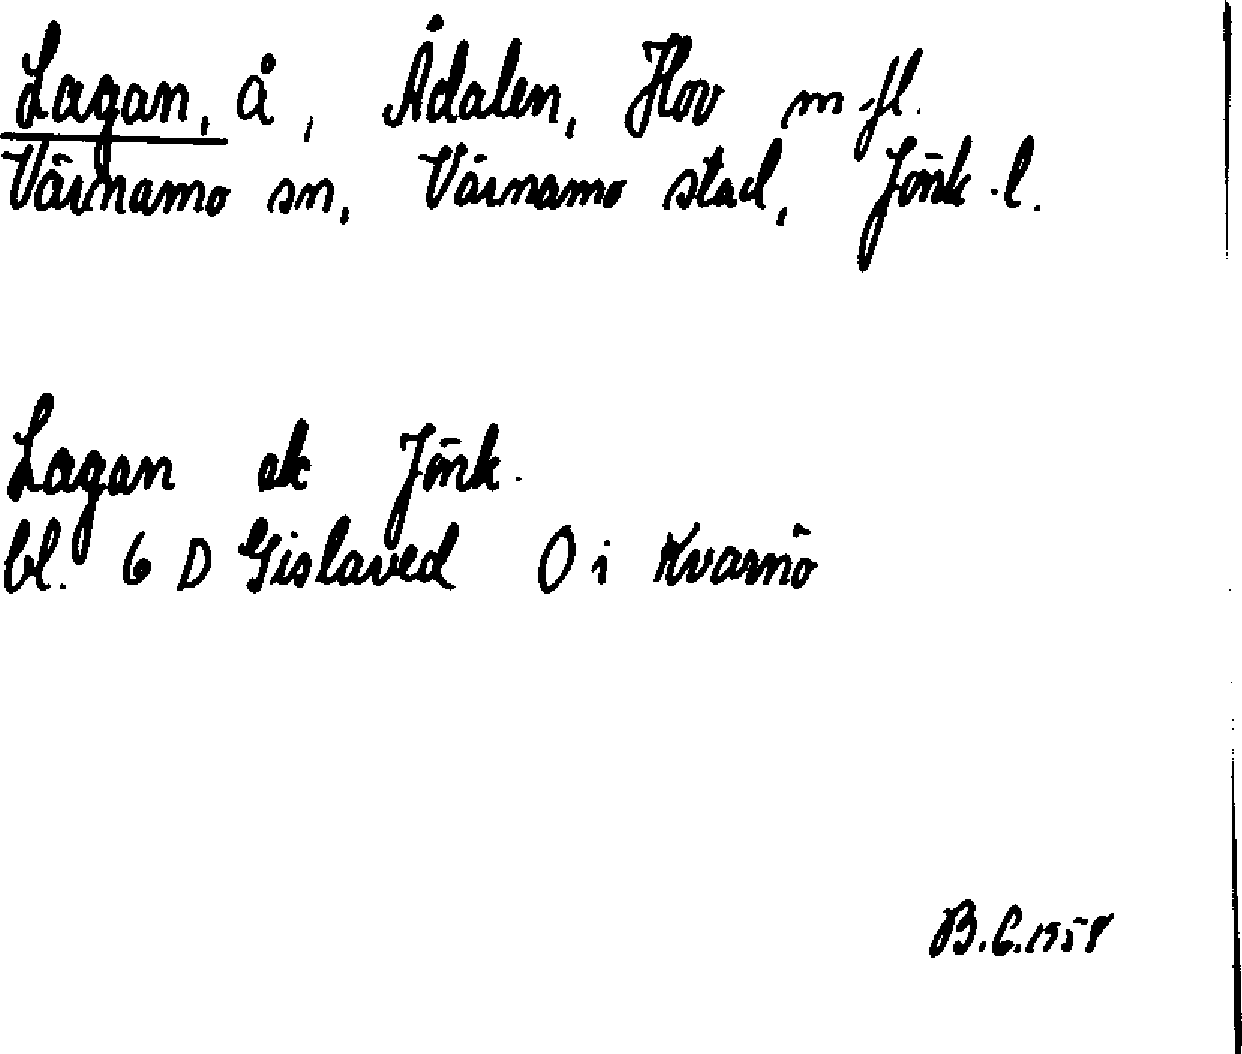 Lagan, å, Ådalen, Hov m.fl.
Värnamo sn, Värnamo stad, Jönk.l.
Lagan ek Jönk.
bl. 6 D Gislaved O i Kvarnö
B.C. 1958